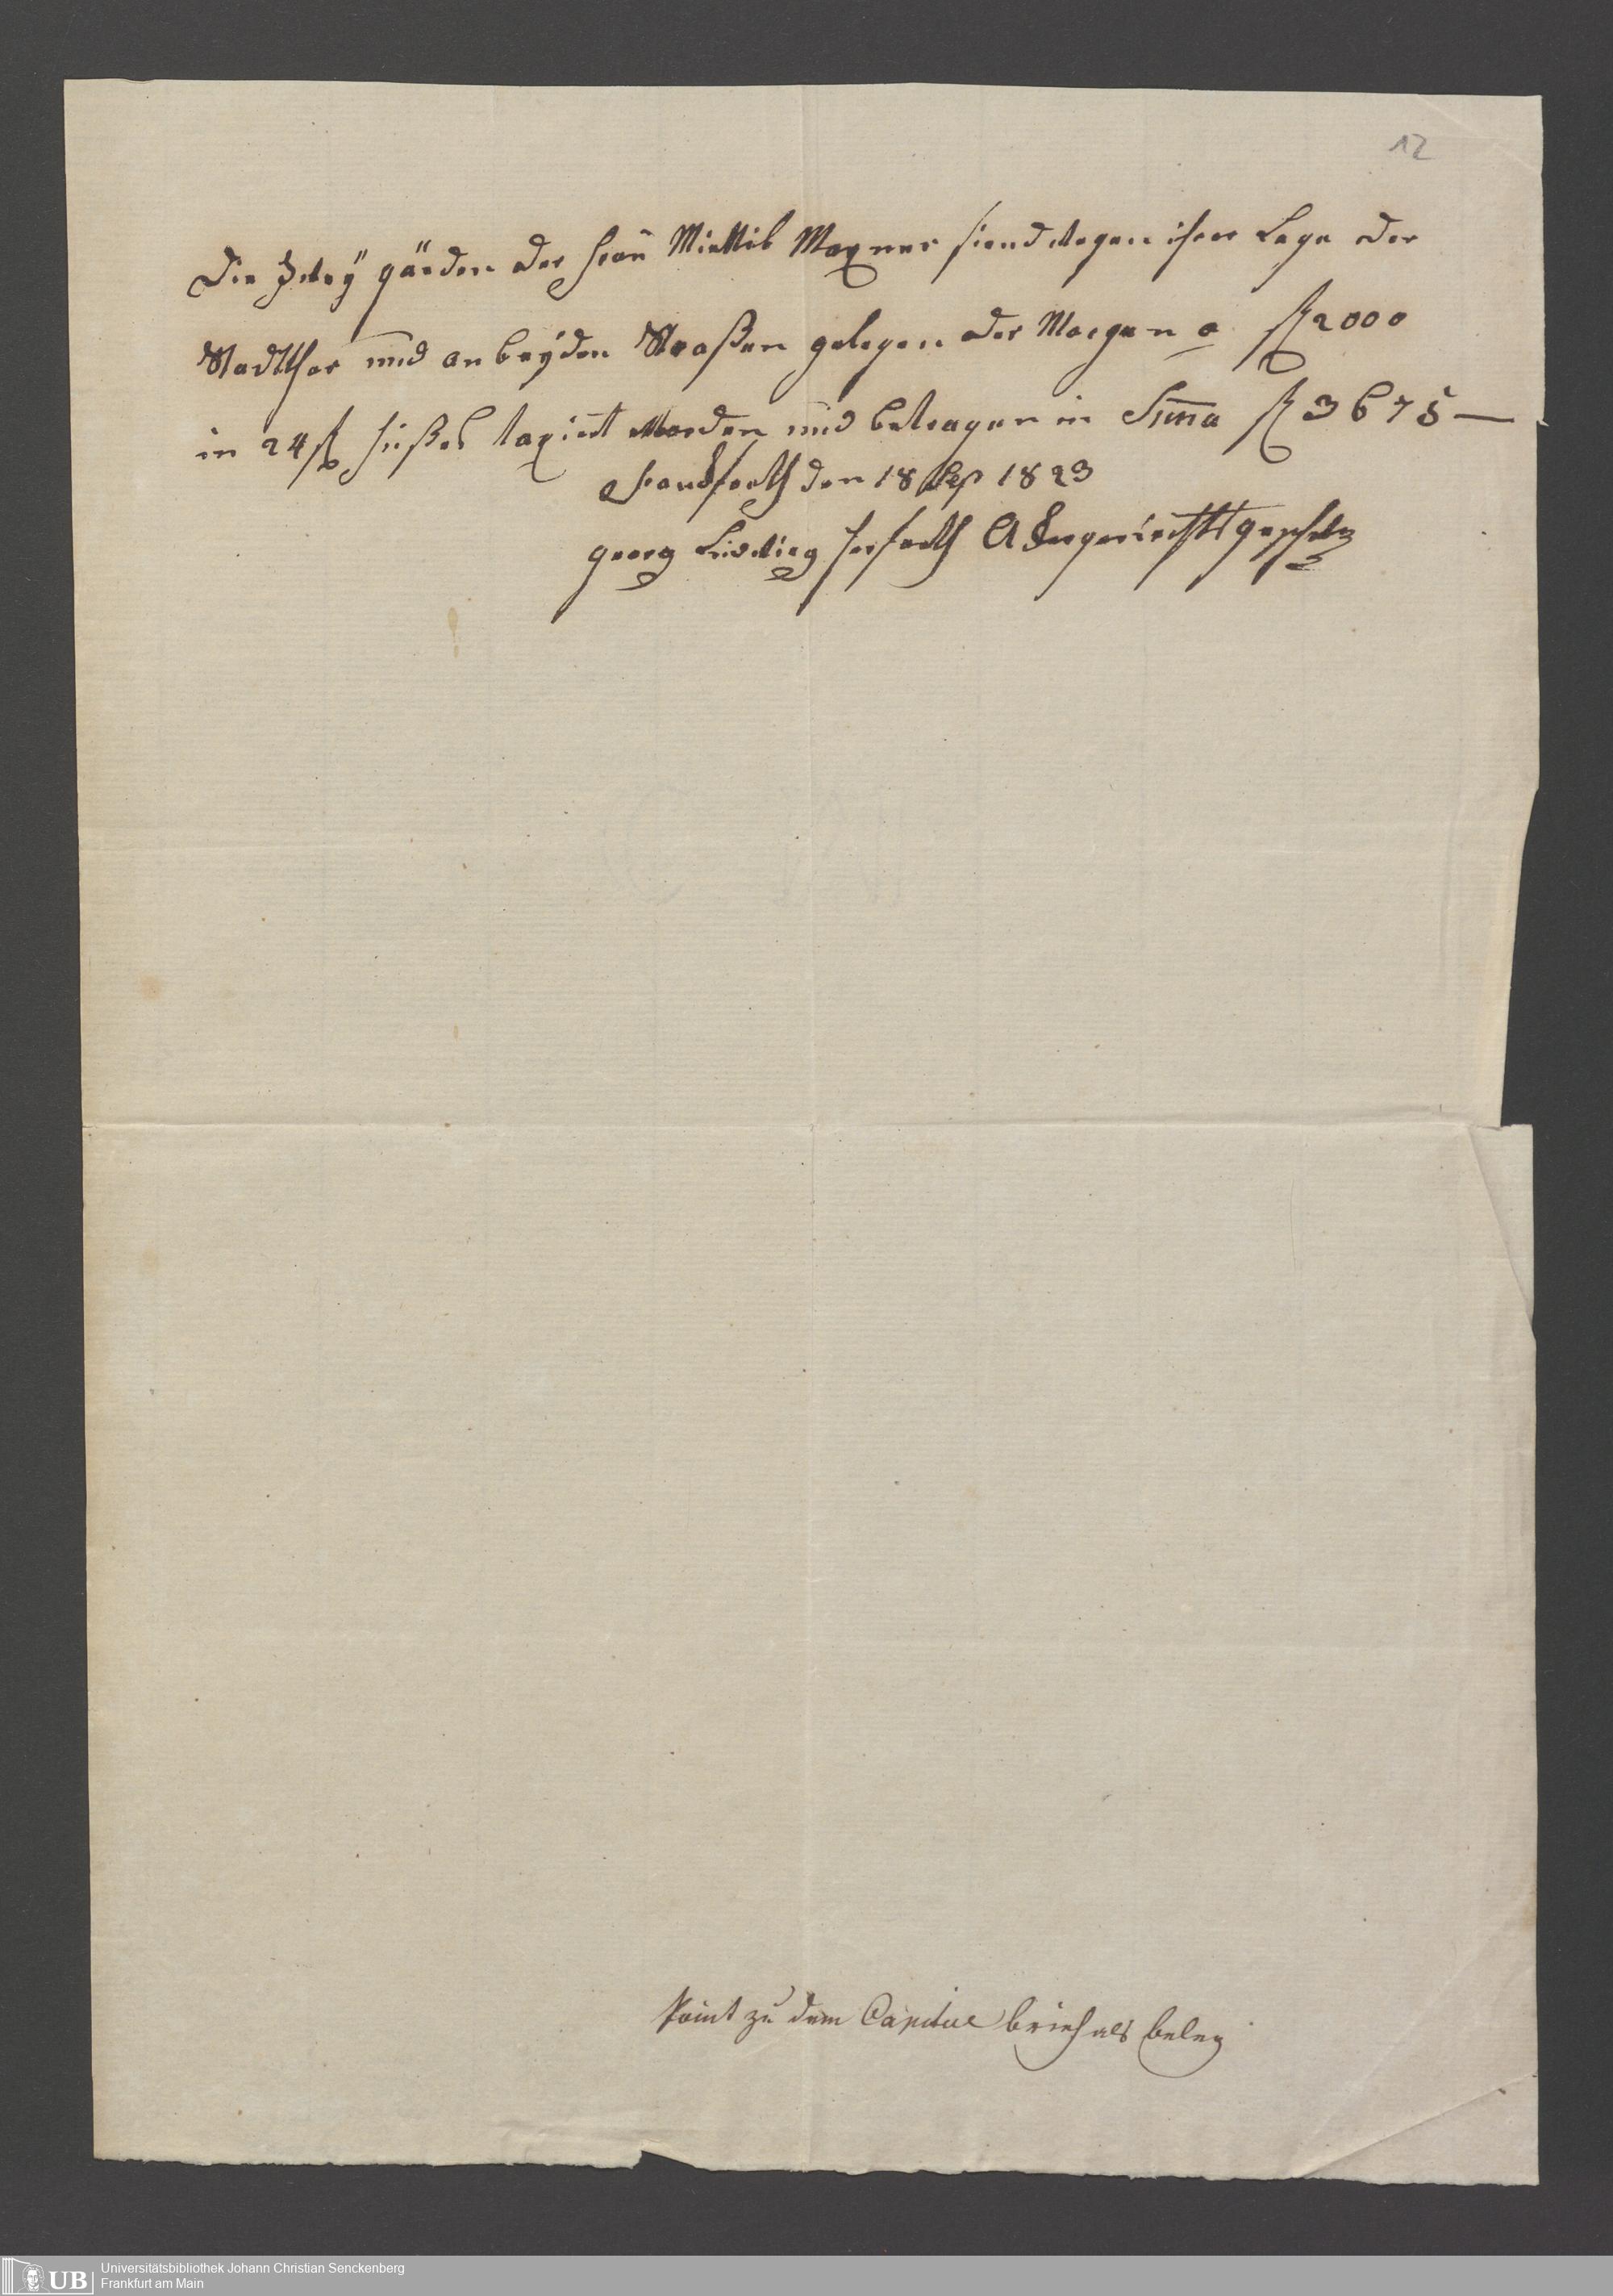 12
Die Zwey gärden der frau Wittib Maxner siend wegen ihrer Lage der
Stadtthor und an beyden Straßen gelegen der Morgen a fl 2000
in 24 fl fußes taxiert worden und betragen in Suma fl 3675 —
franckforth den 18 Sep 1823
georg Ludwig herforth Ackergerichtsgeschw
kömt zu dem Capital brief als beleg
UB Universitätsbibliothek Johann Christian Senckenberg
Frankfurt am Main